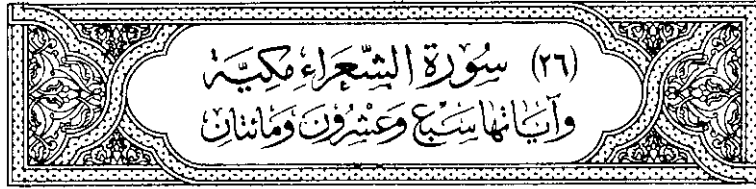 (٢٦) سُورَةُ الشُّعَرَاءِ مَكِيَّة
وَآيَاتُهَا سَبْعٌ وَعِشْرُونَ وَمِائَتَانِ